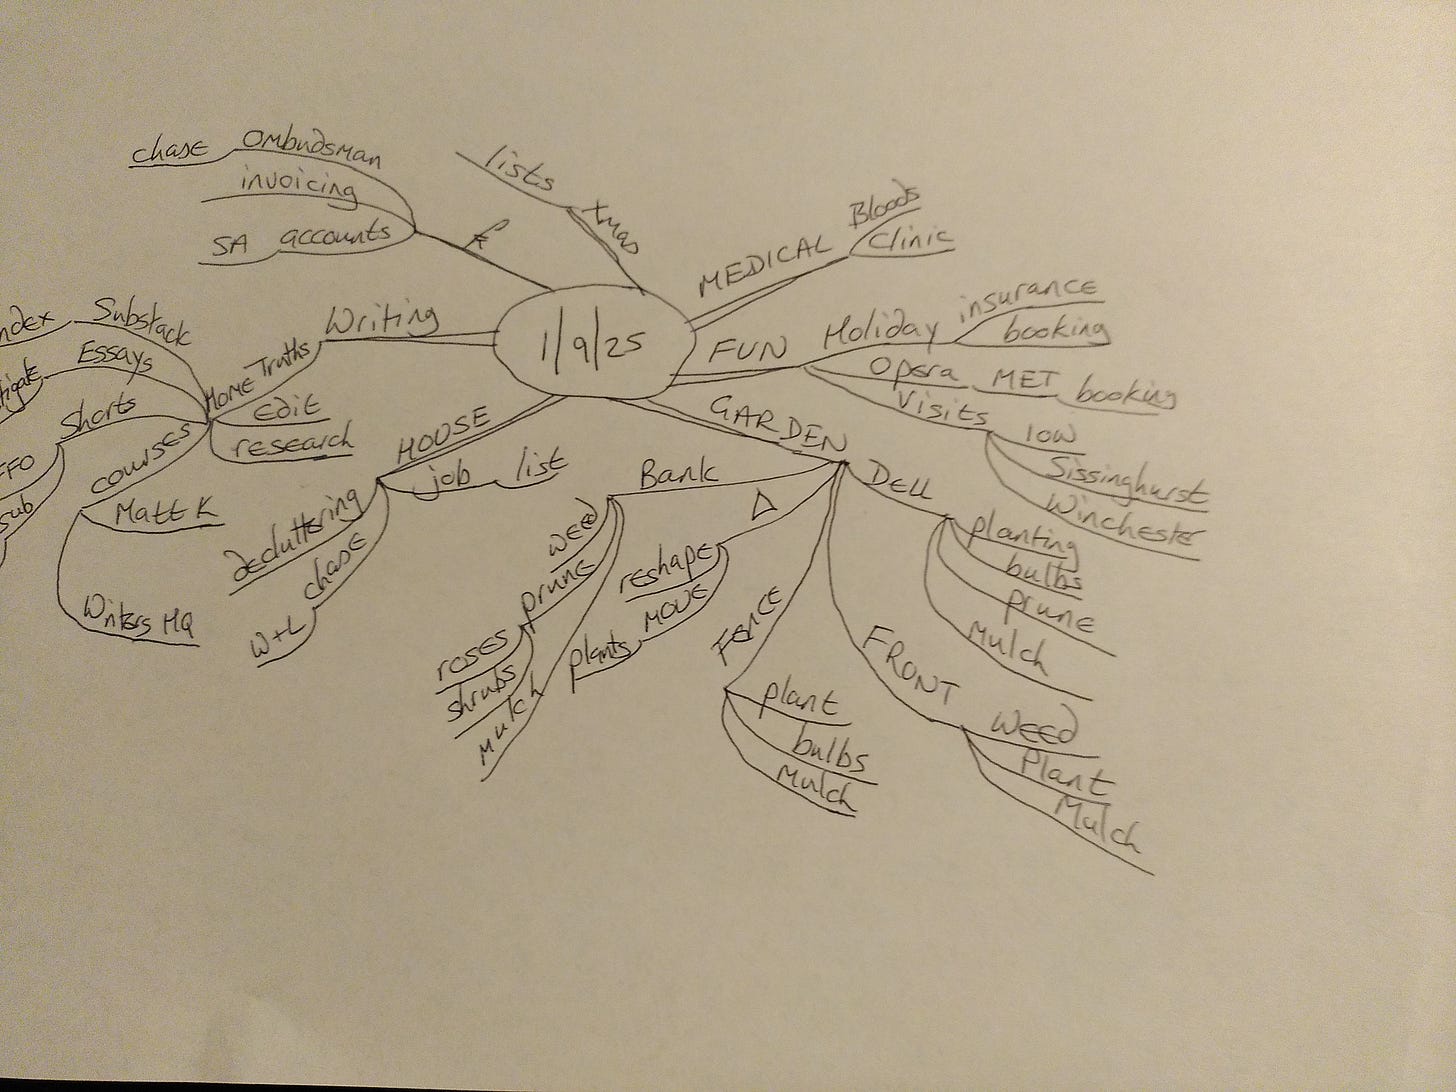 1/9/25
xmas
lists
MEDICAL
Bloods
Clinic
FUN
Holiday
insurance
booking
Opera MET booking
Visits
IOW
Sissinghurst
Winchester
GARDEN
DELL
planting
bulbs
prune
Mulch
FRONT
WEED
Plant
Mulch
FENCE
plant
bulbs
Mulch
Δ
reshape
MOVE
plants
Bank
weed
prune
roses
shrubs
Mulch
HOUSE
job list
decluttering
chase
W+L
Writing
Home Truths
edit
research
Substack
Essays
Shorts
courses
Matt K
Writers HQ
sub
£
chase Ombudsman
invoicing
SA accounts